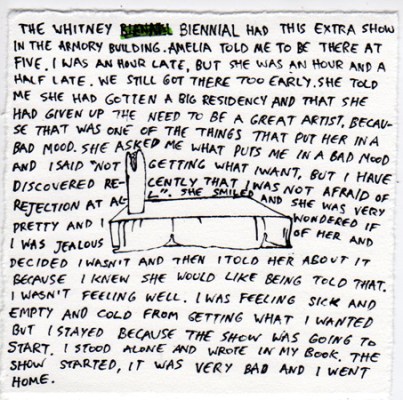 THE WHITNEY BIENNIAL HAD THIS EXTRA SHOW
IN THE ARMORY BUILDING. AMELIA TOLD ME TO BE THERE AT
FIVE. I WAS AN HOUR LATE, BUT SHE WAS AN HOUR AND A
HALF LATE. WE STILL GOT THERE TOO EARLY. SHE TOLD
ME SHE HAD GOTTEN A BIG RESIDENCY AND THAT SHE
HAD GIVEN UP THE NEED TO BE A GREAT ARTIST, BECAU-
SE THAT WAS ONE OF THE THINGS THAT PUT HER IN A
BAD MOOD. SHE ASKED ME WHAT PUTS ME IN A BAD MOOD
AND I SAID "NOT GETTING WHAT I WANT, BUT I HAVE
DISCOVERED RE- CENTLY THAT I WAS NOT AFRAID OF
REJECTION AT AL- L". SHE SMILED AND SHE WAS VERY
PRETTY AND I WONDERED IF
I WAS JEALOUS OF HER AND
DECIDED I WASN'T AND THEN I TOLD HER ABOUT IT
BECAUSE I KNEW SHE WOULD LIKE BEING TOLD THAT.
I WASN'T FEELING WELL. I WAS FEELING SICK AND
EMPTY AND COLD FROM GETTING WHAT I WANTED
BUT I STAYED BECAUSE THE SHOW WAS GOING TO
START. I STOOD ALONE AND WROTE IN MY BOOK. THE
SHOW STARTED, IT WAS VERY BAD AND I WENT
HOME.